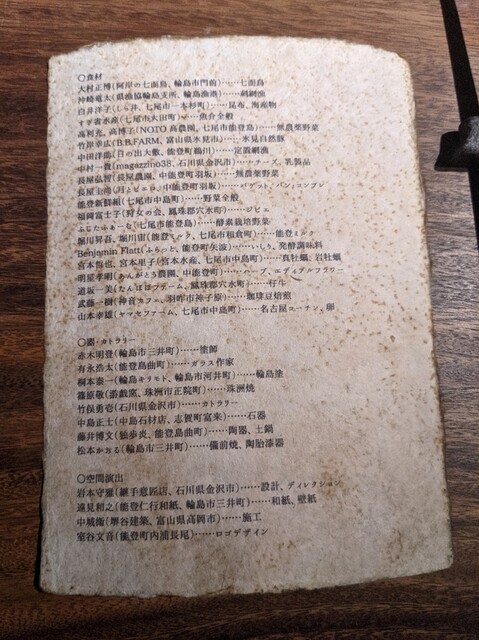 〇食材
大村正博(阿岸の七面鳥、輪島市門前)……七面鳥
沖崎竜太(県漁協輪島支所、輪島漁港)……刺網漁
白井洋子(しら井、七尾市一本杉町)……昆布、海産物
すぎ省水産(七尾市大田町)……魚介全般
高利充、高博子(NOTO高農園、七尾市能登島)……無農薬野菜
竹岸幸広(B.B.FARM、富山県氷見市)……氷見自然豚
中田洋助(日の出大敷、能登町鵜川)……定置網漁
中村一貴(magazzino38、石川県金沢市)……チーズ、乳製品
長屋弘智(長屋農園、中能登町羽坂)……無農薬野菜
長屋圭尚(月とピエロ、中能登町羽坂)……バゲット、パン・コンプレ
能登新鮮組(七尾市中島町)……野菜全般
福岡富士子(狩女の会、鳳珠郡穴水町)……ジビエ
ふじたふぁーむ(七尾市能登島)……酵素栽培野菜
堀川昇吾、堀川宙(能登ミルク、七尾市和倉町)……能登ミルク
Benjamin Flatt(ふらっと、能登町矢波)……いしり、発酵調味料
宮本哲也、宮本里子(宮本水産、七尾市中島町)……真牡蠣、岩牡蠣
明星孝明(あんがとう農園、中能登町)……ハーブ、エディブルフラワー
道坂一美(たんぽぽファーム、鳳珠郡穴水町)……仔牛
武藤一樹(神音カフェ、羽咋市神子原)……珈琲豆焙煎
山本幸雄(ヤマセファーム、七尾市中島町)……名古屋コーチン、卵
〇器・カトラリー
赤木明登(輪島市三井町)……塗師
有永浩太(能登島曲町)……ガラス作家
桐本泰一(輪島キリモト、輪島市河井町)……輪島塗
篠原敬(游戯窯、珠洲市正院町)……珠洲焼
竹俣勇壱(石川県金沢市)……カトラリー
中島正士(中島石材店、志賀町富来)……石器
藤井博文(独歩炎、能登島曲町)……陶器、土鍋
松本かおる(輪島市三井町)……備前焼、陶胎漆器
〇空間演出
岩本守雅(継手意匠店、石川県金沢市)……設計、ディレクション
遠見和之(能登仁行和紙、輪島市三井町)……和紙、壁紙
中城衛(堺谷建築、富山県高岡市)……施工
室谷文音(能登町内浦長尾)……ロゴデザイン